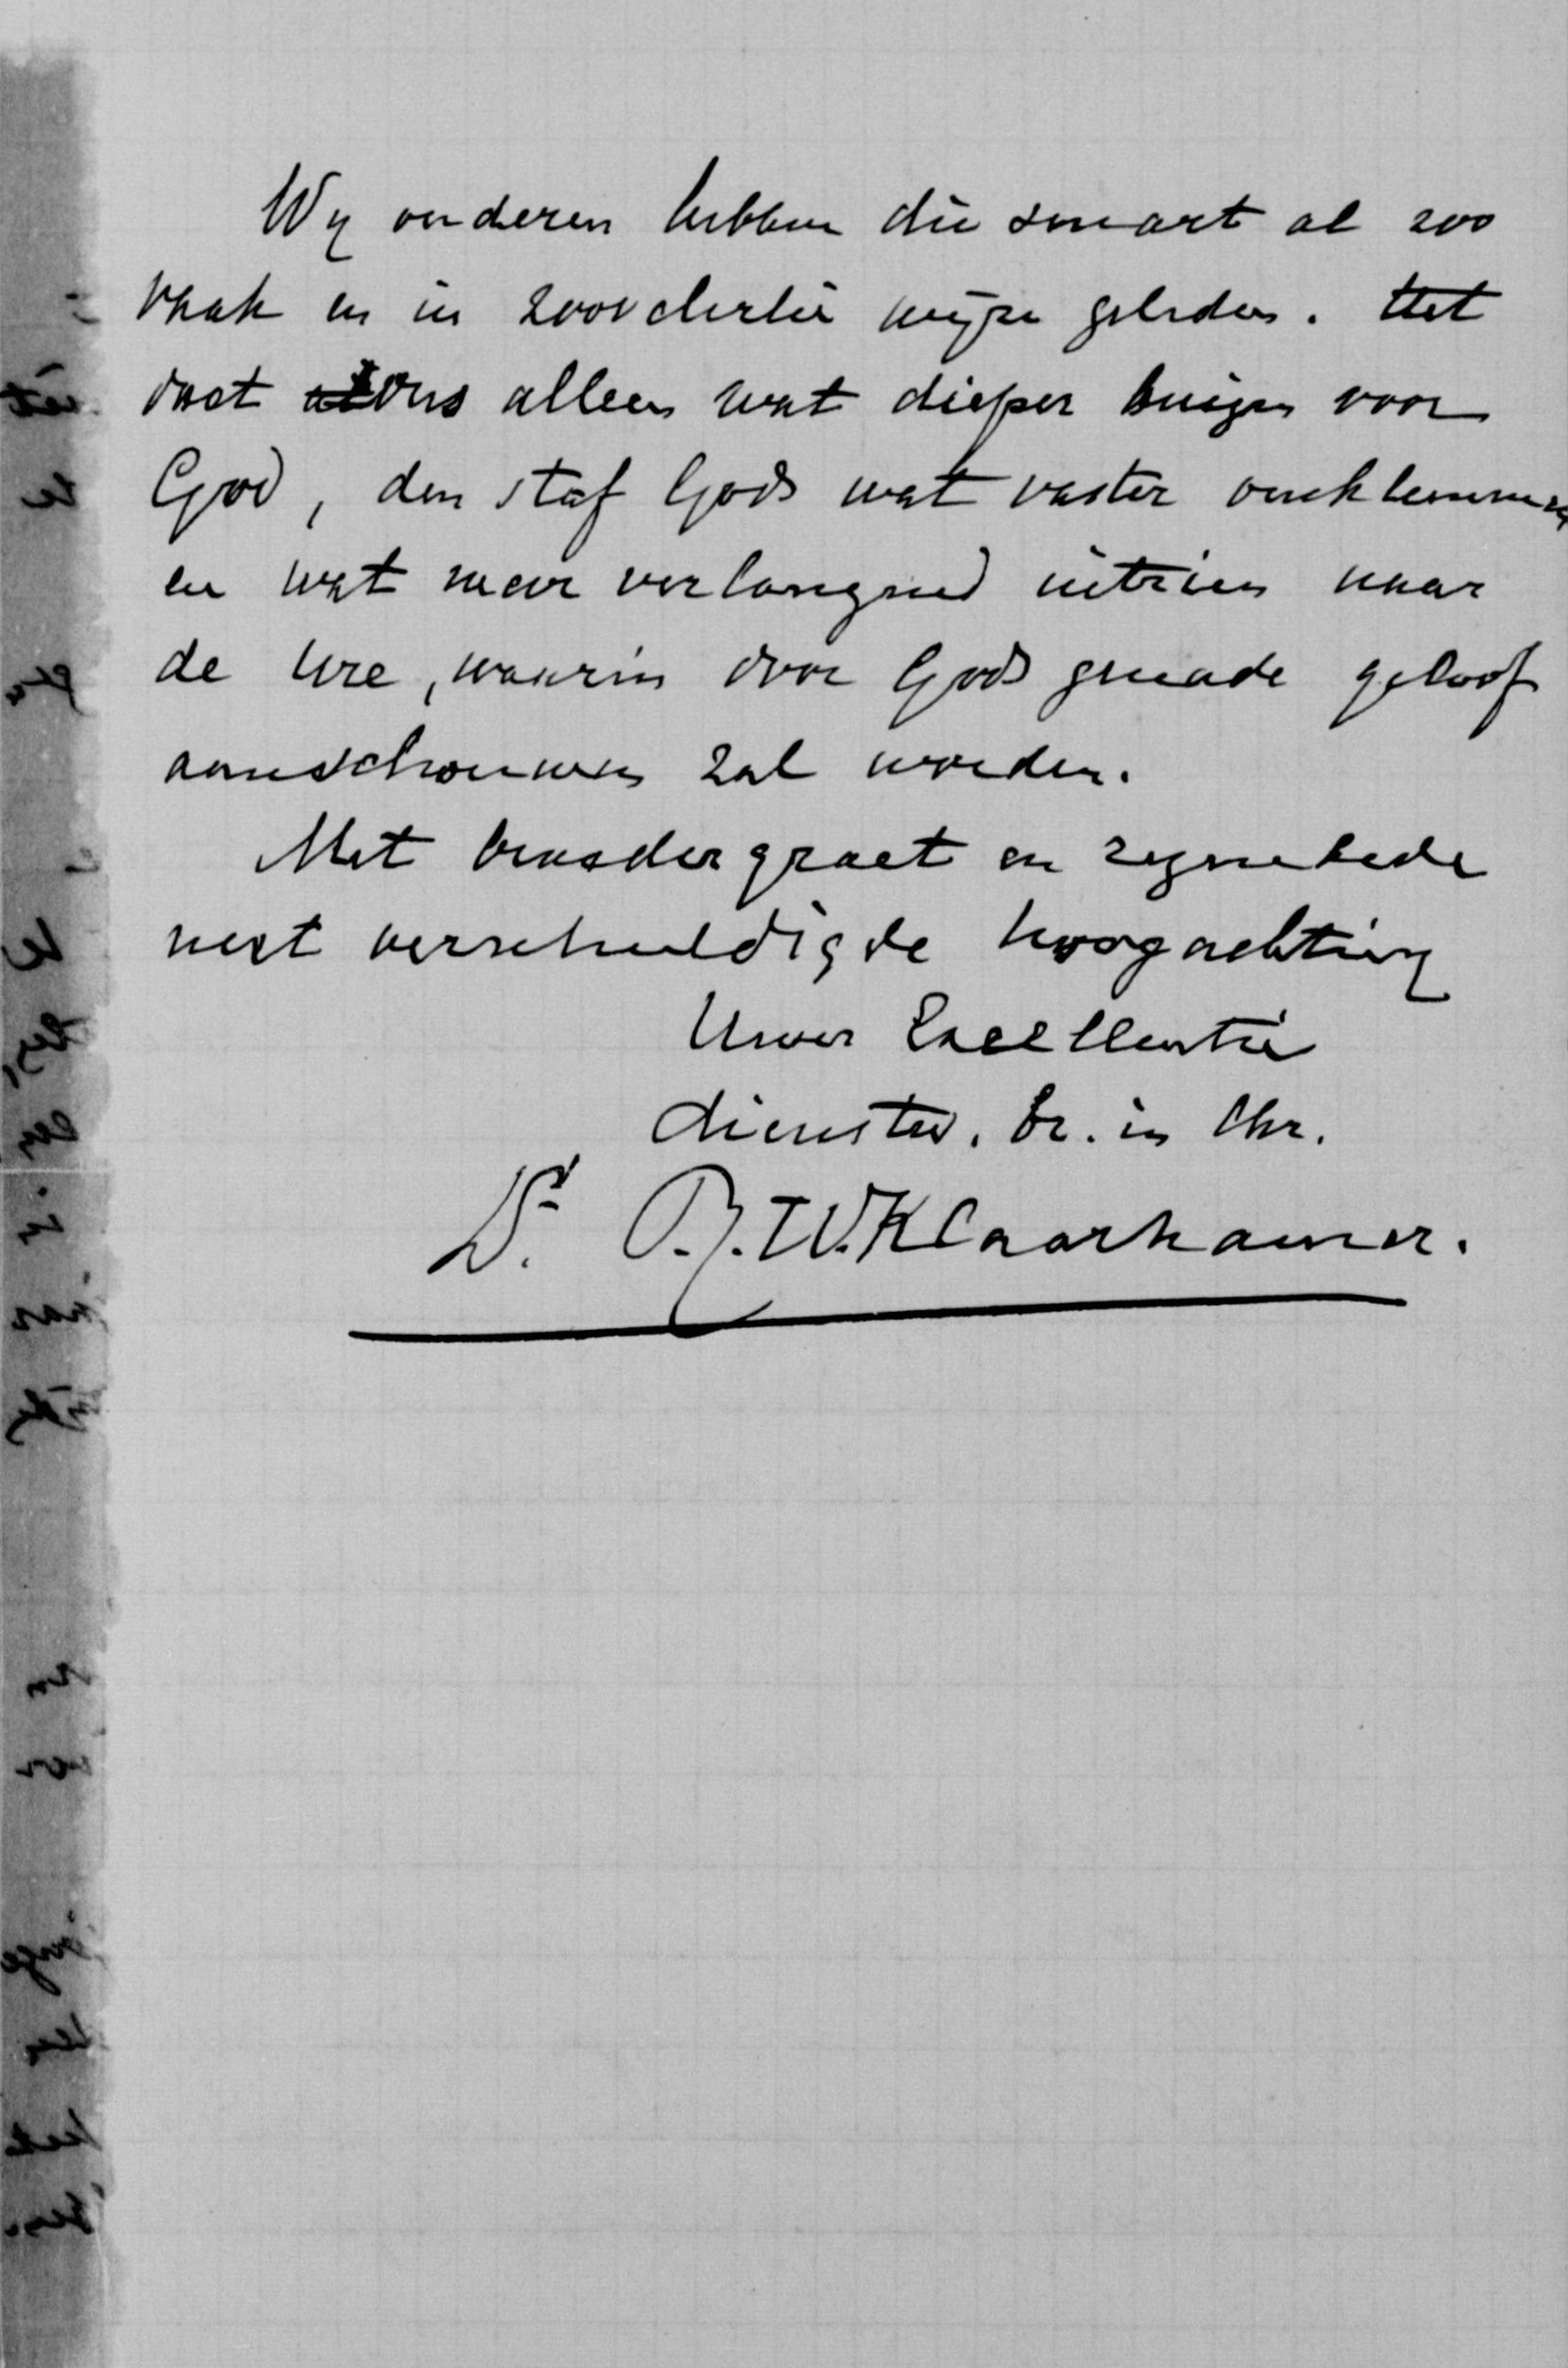 Wij ouderen hebben die smart al zoo
vaak en in zooveelerlei wijze geleden. Het
doet ons alleen wat dieper buigen voor
God, den staf Gods wat vaster omklemmen
en wat meer verlangend uitzien naar
de ure, waarin door Gods genade geloof
aanschouwen zal worden.
Met broedergroet en zegenbede
mest verschuldigde hoogachting
Uwer Excellentie
dienstw. br. in Chr.
Dr. P. J. W. Klaarhamer.